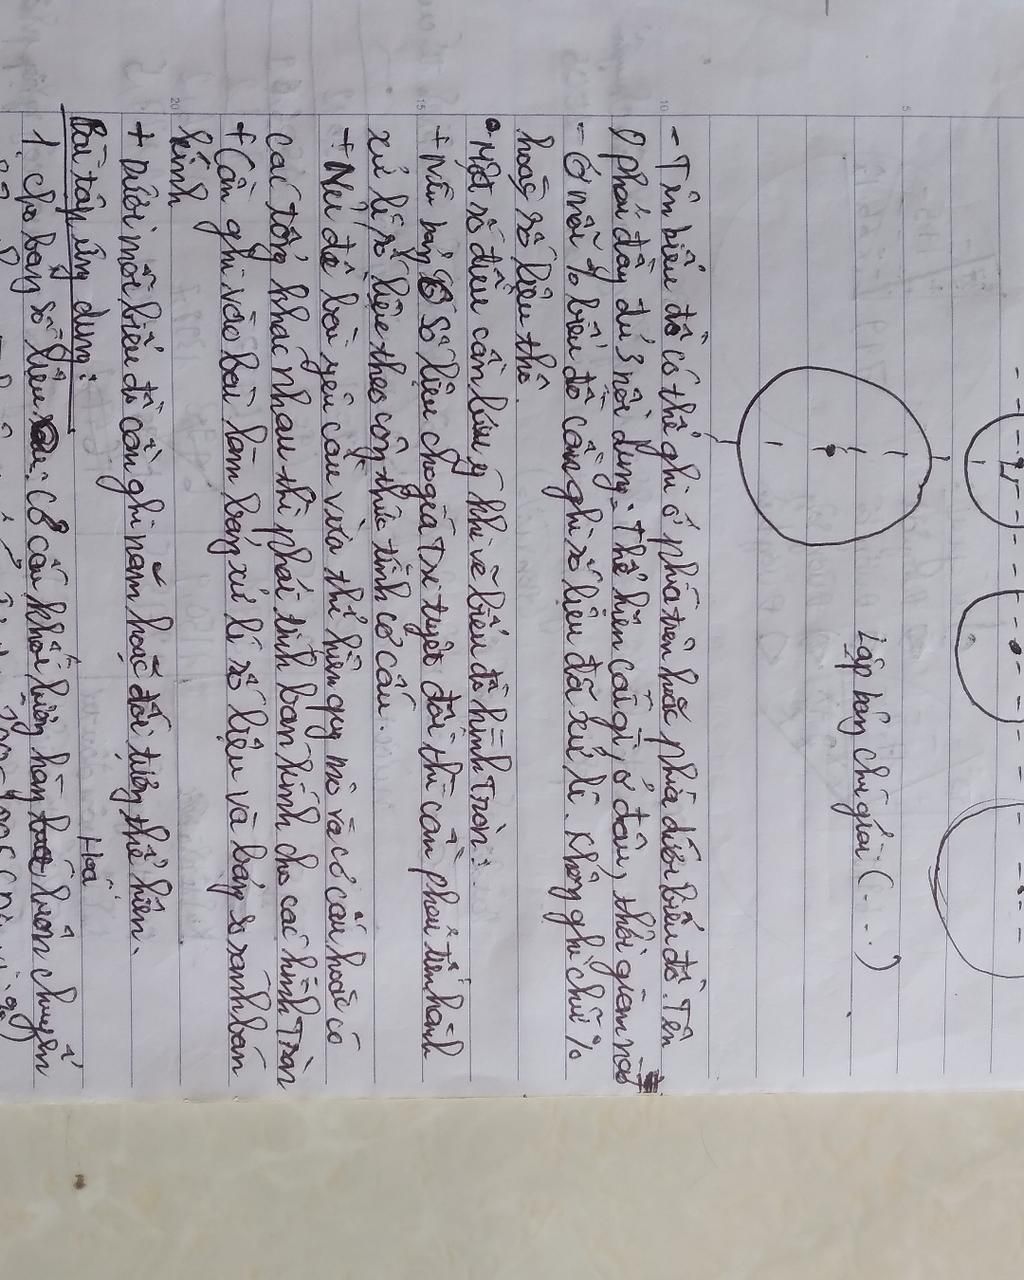 Lập bảng chú giải (...)
- Tên biểu đồ có thể ghi ở phía trên hoặc phía dưới biểu đồ. Tên
phải đầy đủ 3 nội dung: thể hiện cái gì, ở đâu, thời gian nào
- Ở mỗi % biểu đồ cần ghi số liệu đã xử lí. Không ghi chữ %
hoặc số liệu thô.
• Một số điều cần lưu ý khi vẽ biểu đồ hình tròn:
+ Nếu bảng số liệu cho giá trị tuyệt đối thì cần phải tiến hành
xử lí số liệu theo công thức tính cơ cấu.
+ Nếu đề bài yêu cầu vừa thể hiện quy mô và cơ cấu hoặc có
các tổng khác nhau thì phải tính bán kính cho các hình tròn
+ Cần ghi vào bài làm bảng xử lí số liệu và bảng so sánh bán
kính
+ Dưới mỗi biểu đồ cần ghi năm hoặc đối tượng thể hiện.
Bài tập ứng dụng:
1. Cho bảng số liệu sau: Cơ cấu khối lượng hàng hoá luân chuyển
20
15
10
5